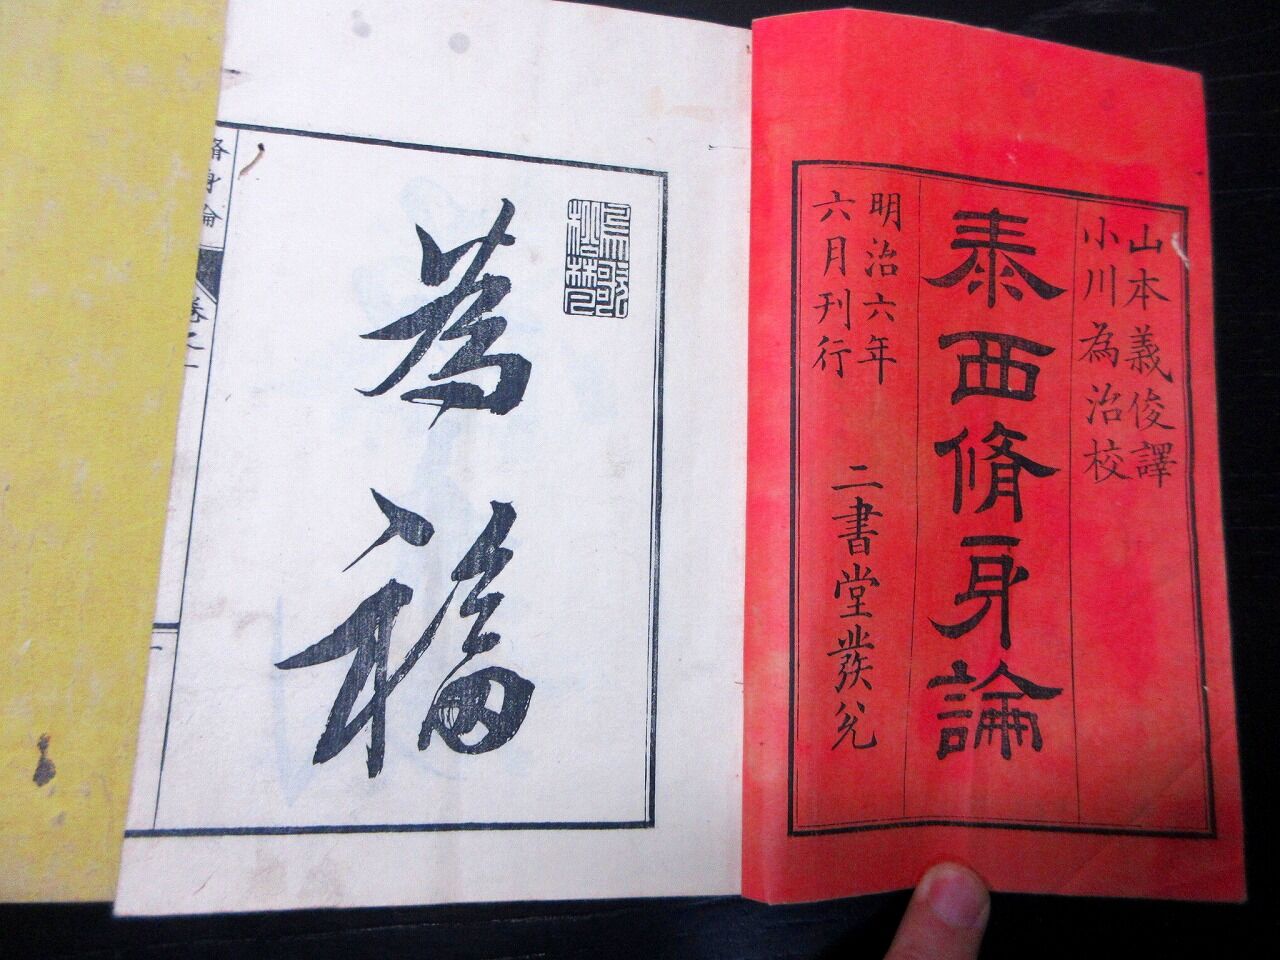 山本義俊譯
小川為治校
泰西脩身論
明治六年
六月刊行
二書堂發兌
為福
脩身論
卷之一
一